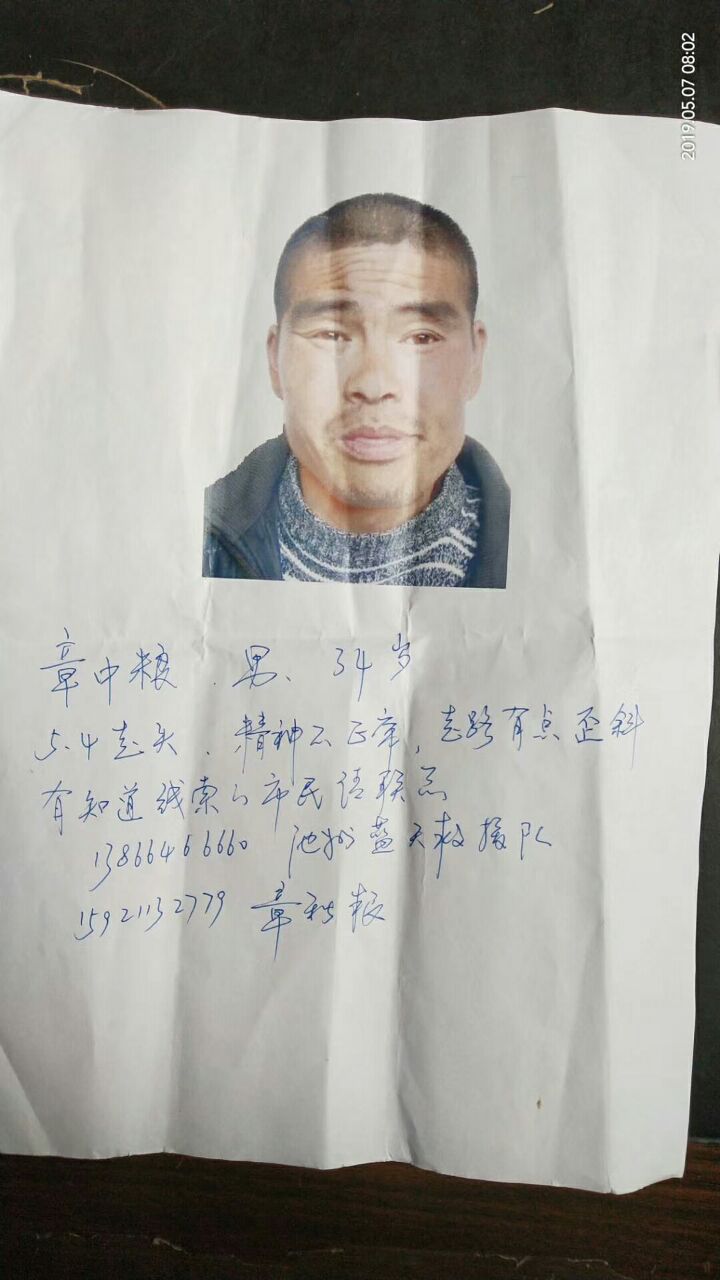 2019.05.07 08:02
章中粮. 男、34岁
5.4走失. 精神不正常, 走路有点歪斜
有知道线索的市民请联系
13866466660 池州蓝天救援队
15921132779 章秋根